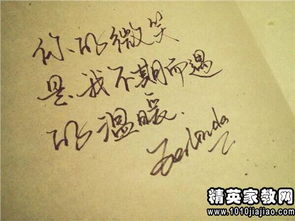 你的微笑
是我不期而遇
的温暖.
精英家教网
www.1010jiajiao.com